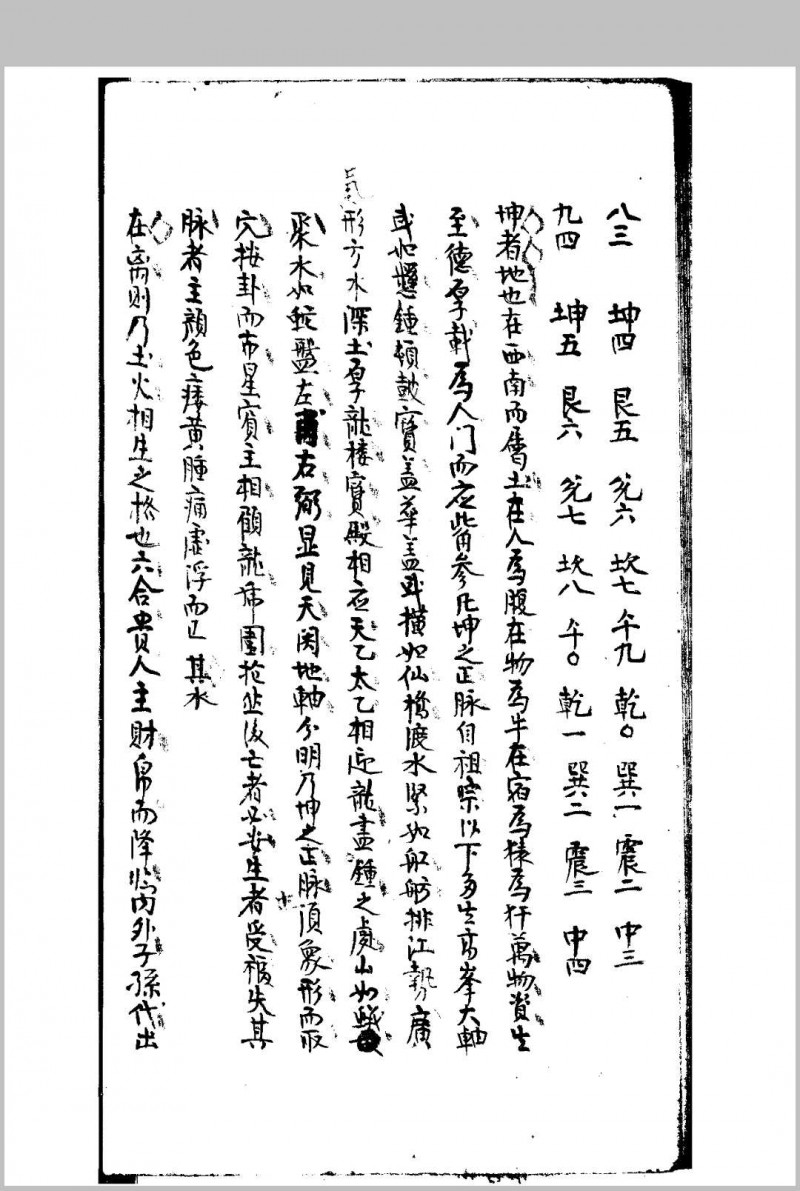 八三 坤四 艮五 兊六 坎七 午九 乾〇 巽一 震二 中三
九四 坤五 艮六 兊七 坎八 午〇 乾一 巽二 震三 中四
坤者地也在西南而屬土在人為腹在物為牛在宿為猿為犴萬物資生
至德厚載為人门而应觜參凡坤之正脉自祖宗以下多生高峯大軸
或如懸鍾頓鼓寳盖華盖或橫如仙橋渡水緊如舡舫排江勢廣
氣形方水深土厚龍楼寳殿相应天乙太乙相迎龍盡鍾之處山如
聚水如蛇盤左右弼显見天関地軸分明乃坤之正脉湏象形而取
穴按卦而布星賓主相顧龍虎圍抢然後亡者必安生者受福失其
脉者主顔色痿黄腫痛虛浮而已 其水
在离則乃土火相生之格也六合貴人主財帛而降临内外子孫代出